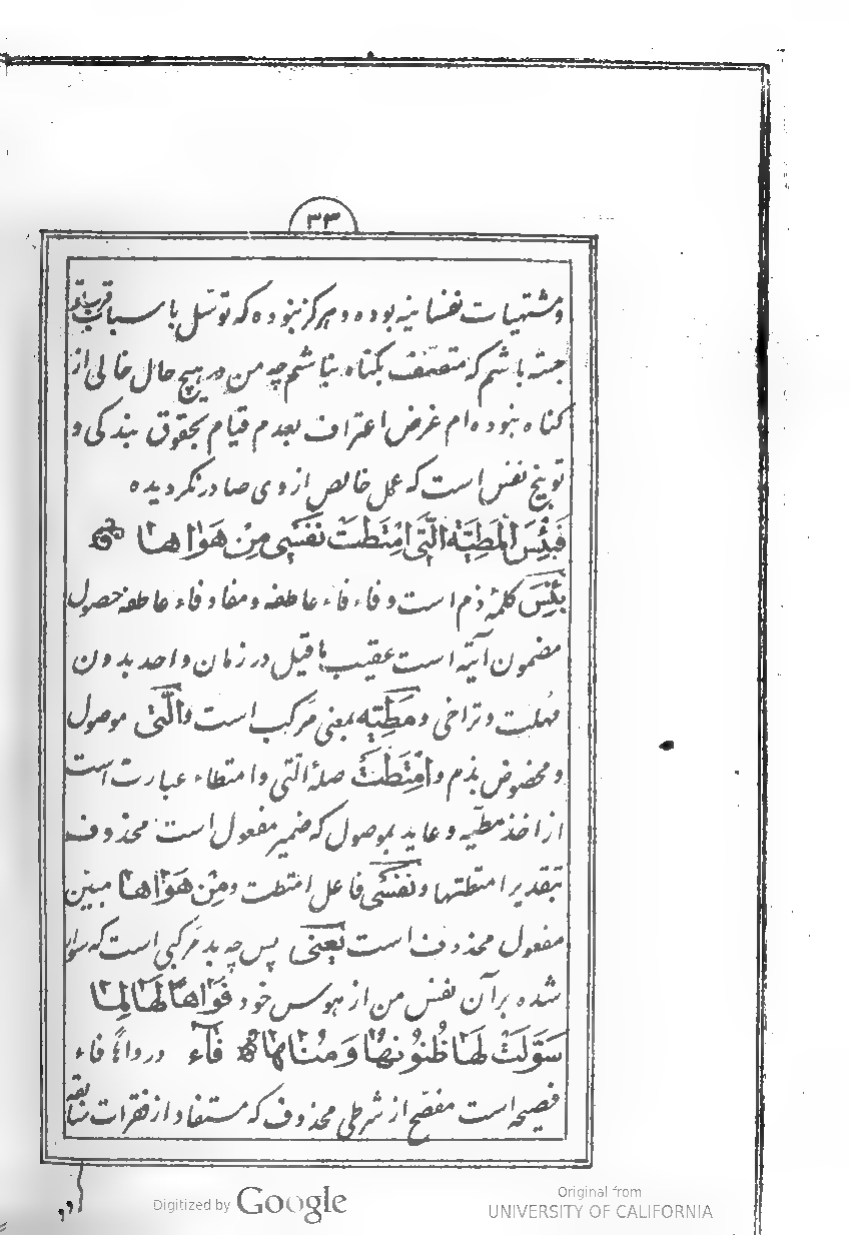 ٣٣
ومشتهیات نفسانیه بوده و هرکز نبوده که توسّل باسباب قرب تو
جسته باشم که متصف بکناه نباشم چه من در هیچ حال خالی از
کناه نبوده ام غرض اعتراف بعدم قیام بحقوق بندکی و
توبیخ نفس است که عمل خالص از وی صادر نکردیده
فَبِئْسَ الْمَطِیَّةُ الَّتِی امْتَطَتْ نَفْسِی مِنْ هَوٰاهٰا
بِئْسَ کلمۀ ذم است و فاء فاء عاطفه و مفاد فاء عاطفه حصول
مضمون آتیه است عقیب ما قیل در زمان واحد بدون
مُهلت و تراخی و مَطِیّه بمعنی مَرکب است و الَّتی موصول
و مخصوص بذم و امْتَطَتْ صلۀ الّتی و امتطاء عبارت است
از اخذ مطیّه و عاید بموصول که ضمیر مفعول است محذوف
بتقدیر امتطتها و نَفْسی فاعل امتطت و مِنْ هَوٰاهٰا مبیّن
مفعول محذوف است یَعنی پس چه بد مَرکبی است که سوار
شده بر آن نفس من از هوس خود فَوٰاهاً لَهٰا لِمٰا
سَوَّلَتْ لَهٰا ظُنُونُهٰا وَ مُنٰاهٰا فٰآء در واهاً فاء
فصیحه است مفصح از شرطی محذوف که مستفاد از فقرات سابقه
Digitized by Google
Original from
UNIVERSITY OF CALIFORNIA